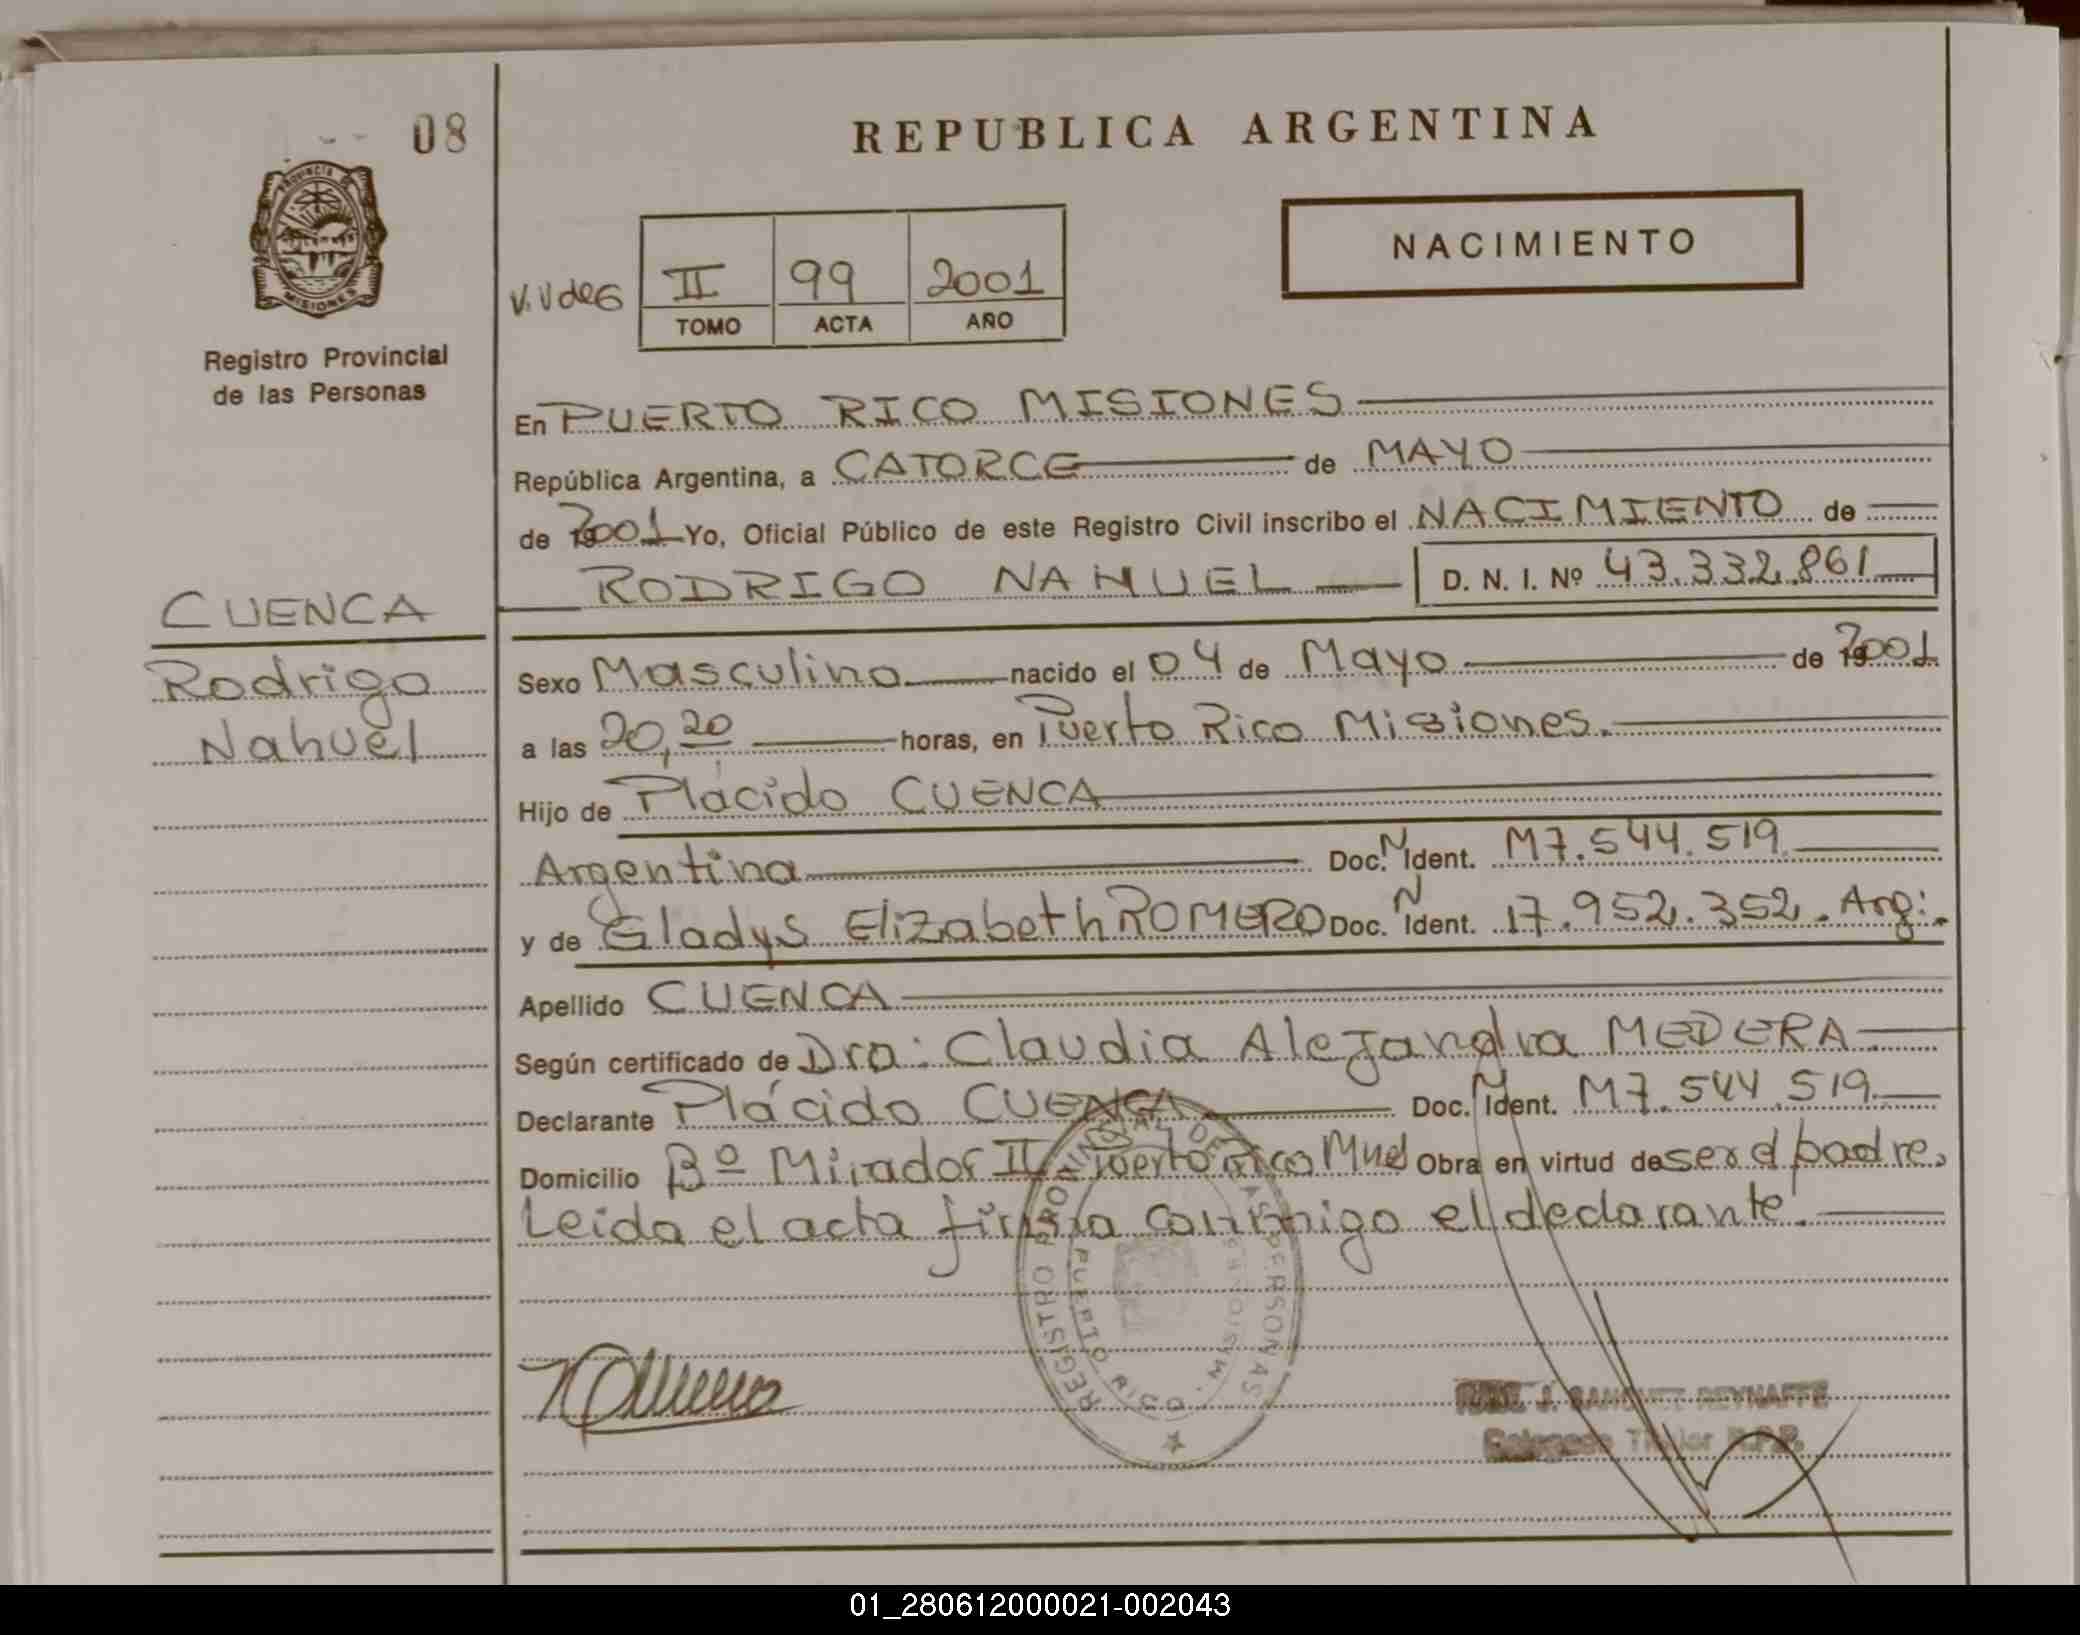 08
REPUBLICA ARGENTINA
PROVINCIA DE
MISIONES
Registro Provincial
de las Personas
NACIMIENTO
II 99 2001
TOMO ACTA AÑO
En PUERTO RICO MISIONES
República Argentina, a CATORCE de MAYO
de 2001 Yo, Oficial Público de este Registro Civil inscribo el NACIMIENTO de
RODRIGO NAHUEL D. N. I. Nº 43.332.861
CUENCA
Rodrigo
Nahuel
Sexo Masculino nacido el 04 de Mayo de 2001
a las 20,20 horas, en Puerto Rico Misiones.
Hijo de Plácido CUENCA
Argentina Doc. N Ident. M7.544.519
y de Gladys Elizabeth ROMERO Doc. N Ident. 17.952.352. Arg:.
Apellido CUENCA
Según certificado de Dra: Claudia Alejandra MEDERA
Declarante Plácido CUENCA Doc. N Ident. M7.544.519
Domicilio Bº Mirador II Puerto Rico Mnes Obra en virtud de ser el padre,
Leída el acta firma conmigo el declarante.
REGISTRO PROVINCIAL DE LAS PERSONAS
PUERTO RICO - MISIONES
J. REYNAFFE
Delegado Titular R.P.P.
01_280612000021-002043